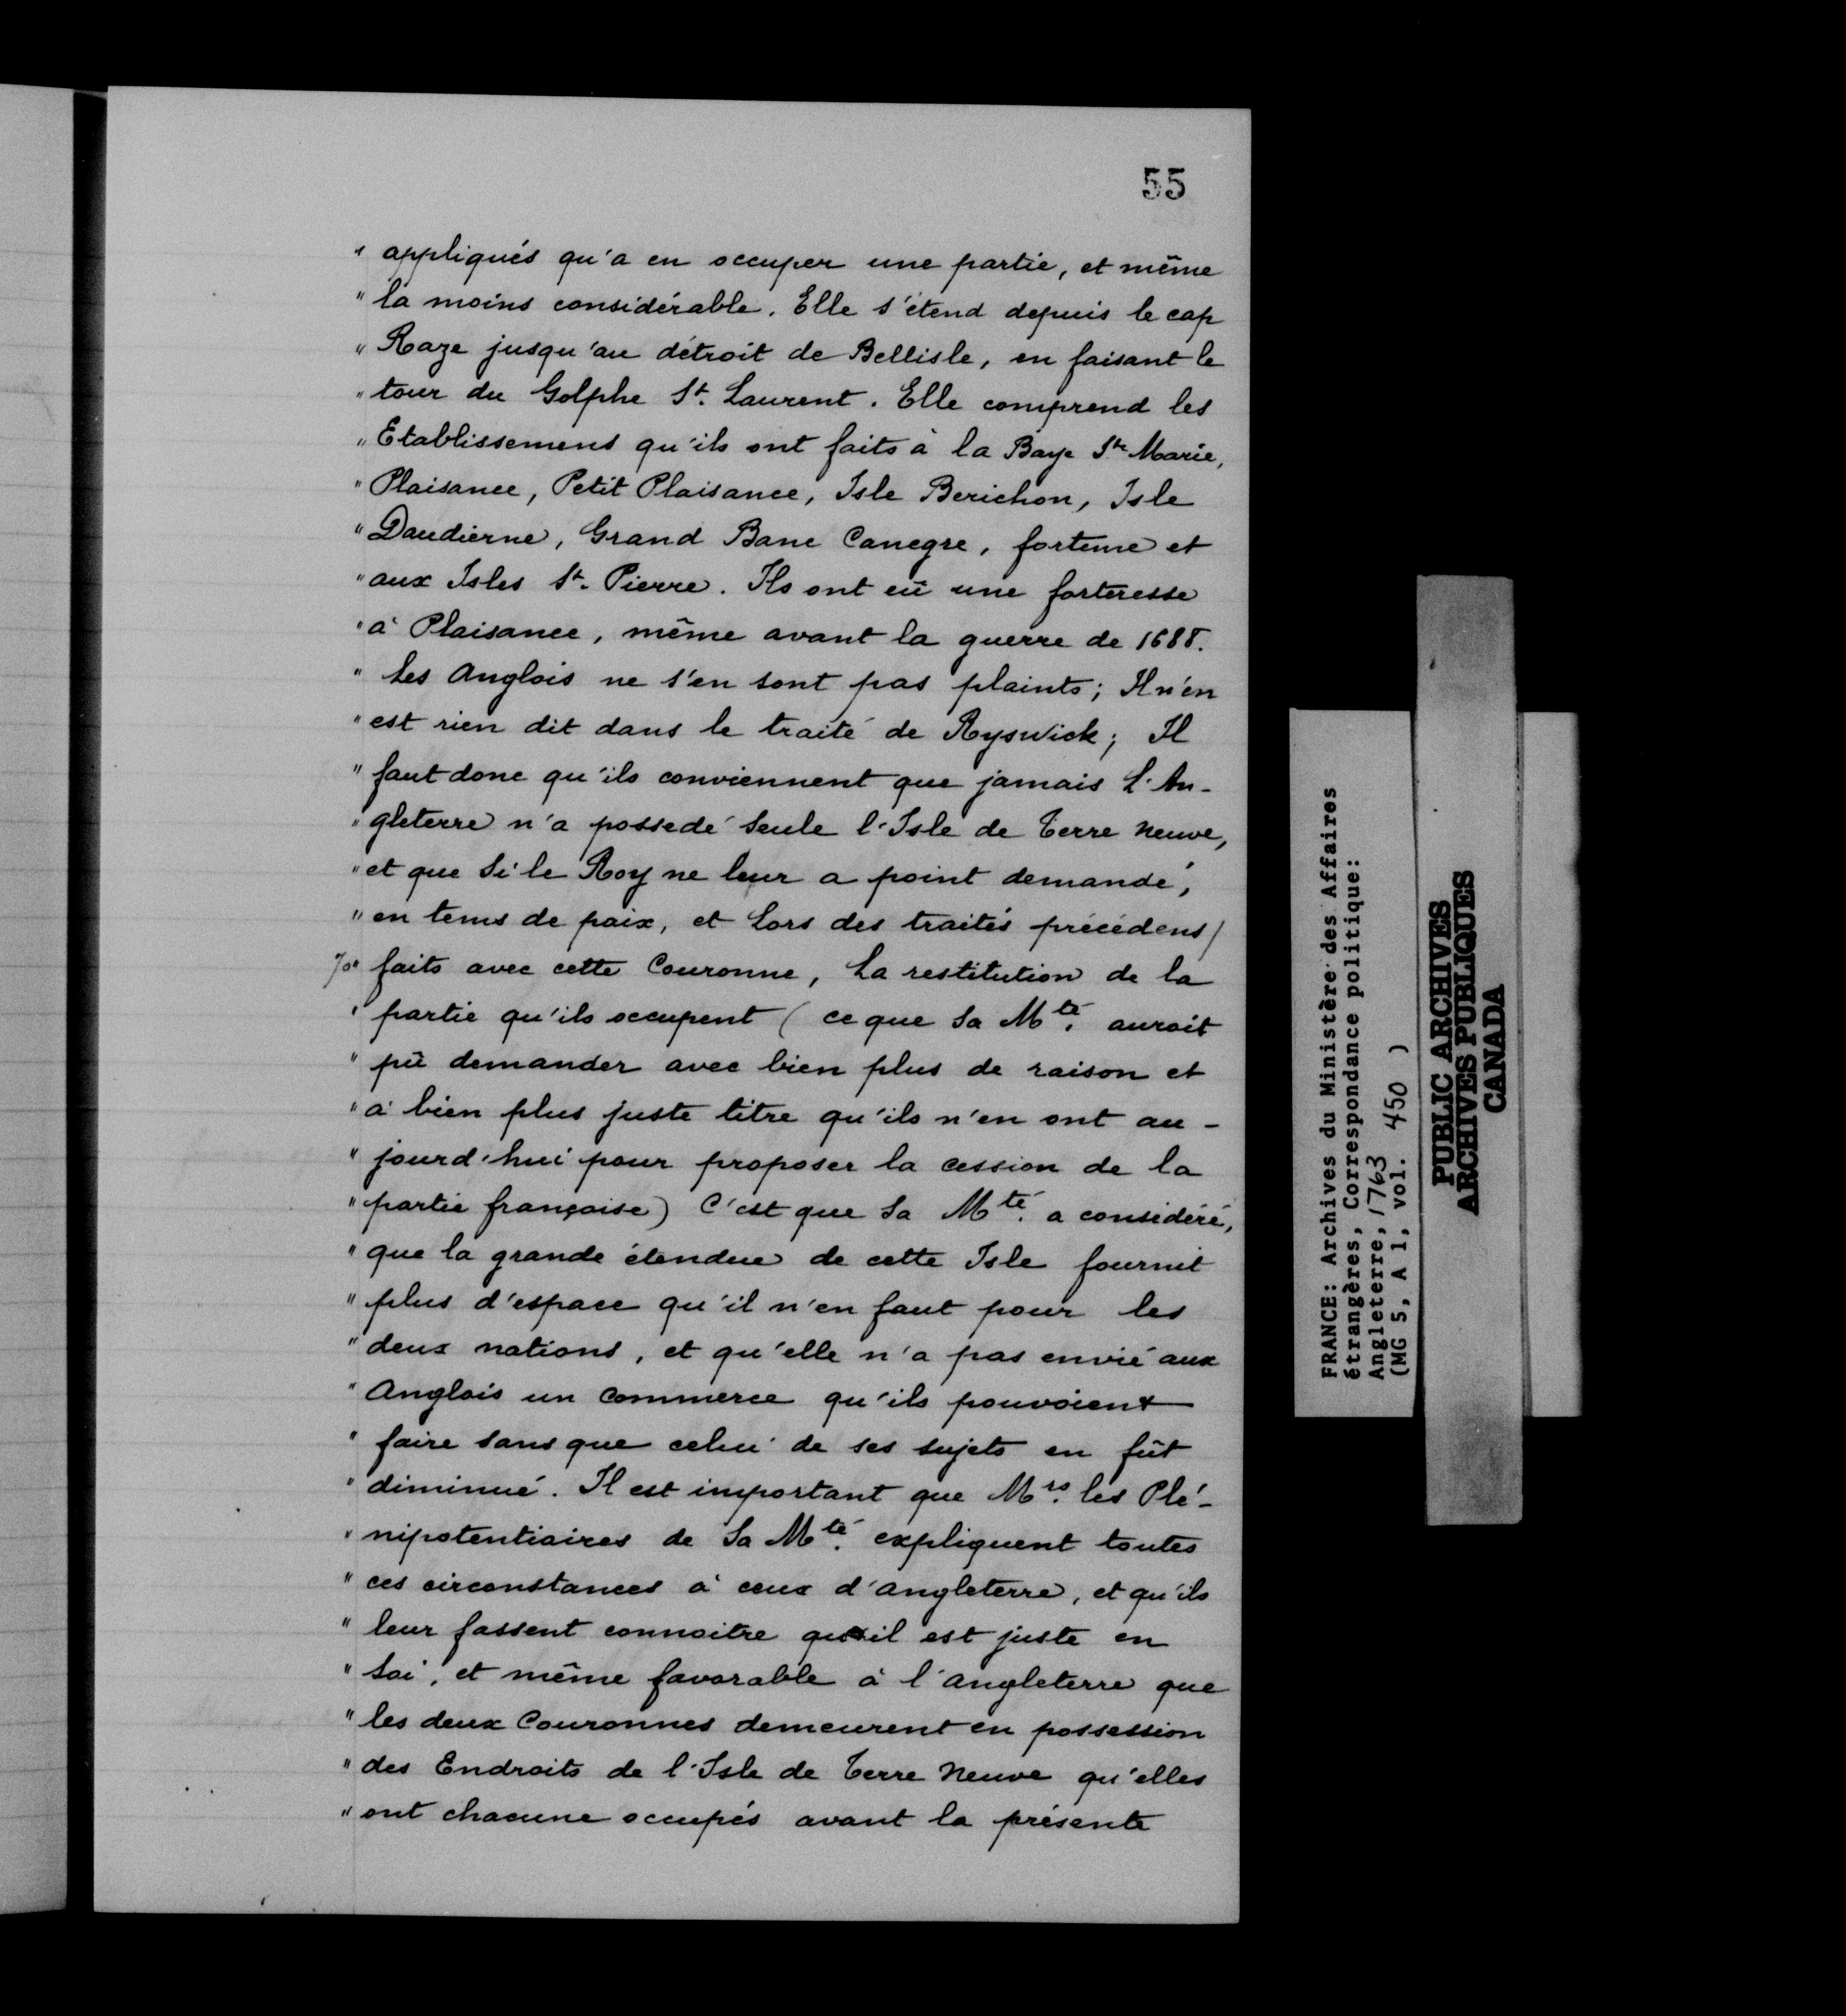 55
" appliqués qu'a en occuper une partie, et même
" la moins considérable. Elle s'étend depuis le cap
" Raze jusqu'au détroit de Bellisle, en faisant le
" tour du Golphe St. Laurent. Elle comprend les
" Etablissemens qu'ils ont faits à la Baye Ste Marie,
" Plaisance, Petit Plaisance, Isle Berichon, Isle
" Daudierne, Grand Banc Canegre, fortune et
" aux Isles St. Pierre. Ils ont eû une forteresse
" à Plaisance, même avant la guerre de 1688.
" Les Anglois ne s'en sont pas plaints; Il n'en
" est rien dit dans le traité de Ryswick; Il
" faut donc qu'ils conviennent que jamais L'An-
" gleterre n'a possedé seule l'Isle de Terre neuve,
" et que Si le Roy ne leur a point demandé,
" en tems de paix, et lors des traités précédens/
" faits avec cette Couronne, La restitution de la
" partie qu'ils occupent (ce que Sa Mté. auroit
" pû demander avec bien plus de raison et
" à bien plus juste titre qu'ils n'en ont au-
" jourd'hui pour proposer la cession de la
" partie française) C'est que Sa Mté. a considéré,
" que la grande étendue de cette Isle fournit
" plus d'espace qu'il n'en faut pour les
" deux nations, et qu'elle n'a pas envié aux
" Anglois un commerce qu'ils pouvoient
" faire sans que celui de ses sujets en fût
" diminué. Il est important que Mrs. les Plé-
" nipotentiaires de Sa Mté. expliquent toutes
" ces circonstances à ceux d'angleterre, et qu'ils
" leur fassent connoitre qu'il est juste en
" soi, et même favorable à l'angleterre que
" les deux Couronnes demeurent en possession
" des Endroits de l'Isle de Terre Neuve qu'elles
" ont chacune occupés avant la présente
FRANCE: Archives du Ministère des Affaires
étrangères, Correspondance politique:
Angleterre, 1763
(MG 5, A 1, vol. 450 )
PUBLIC ARCHIVES
ARCHIVES PUBLIQUES
CANADA